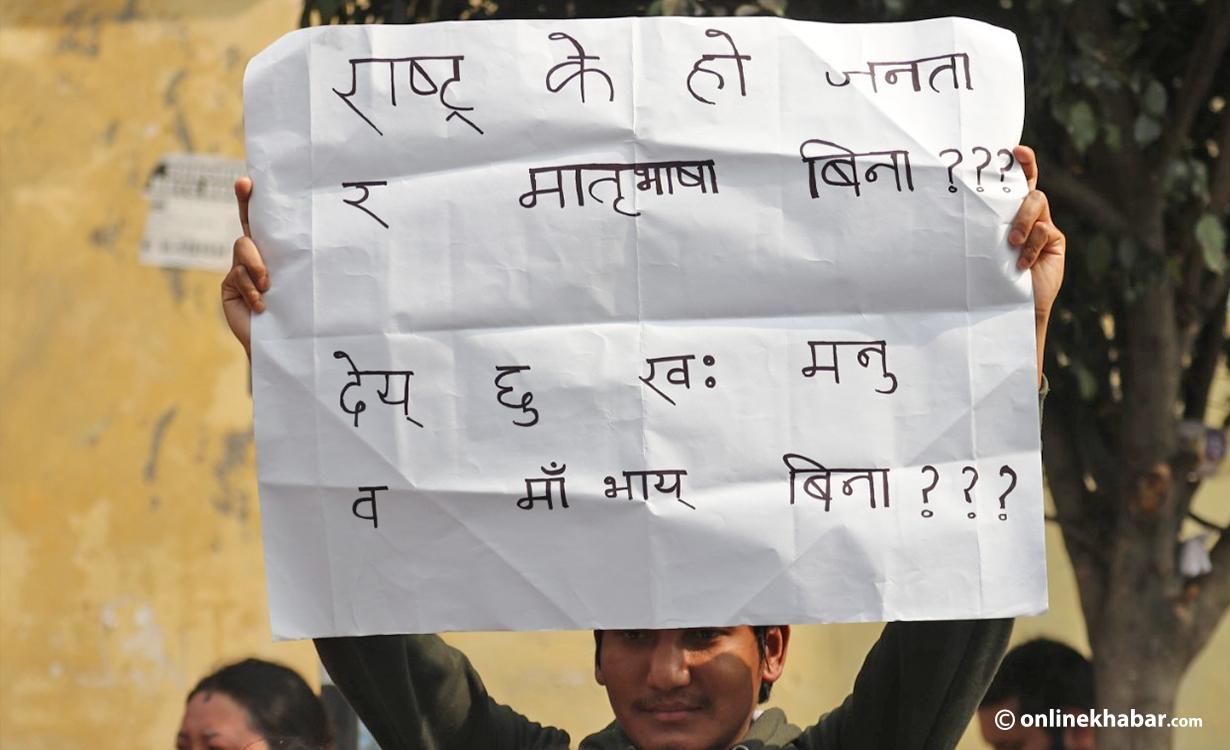 राष्ट्र के हो जनता
र मातृभाषा बिना ???
देय् छु खः मनु
व माँ भाय् बिना ???
© onlinekhabar.com